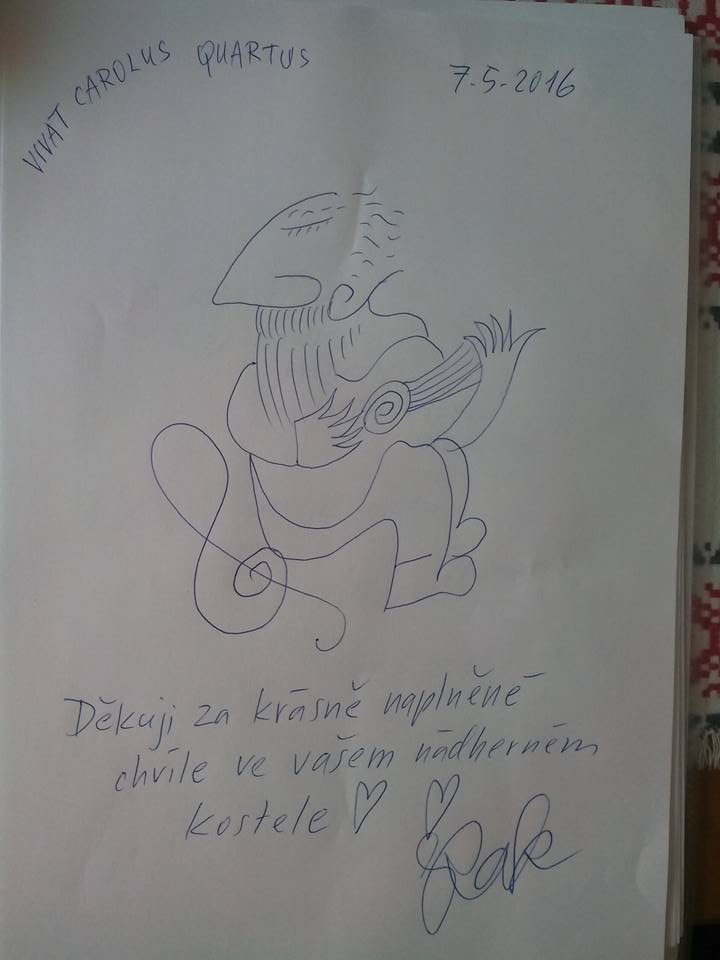 VIVAT CAROLUS QUARTUS
7.5.2016
Děkuji za krásně naplněné
chvíle ve vašem nádherném
kostele ♡
Rak